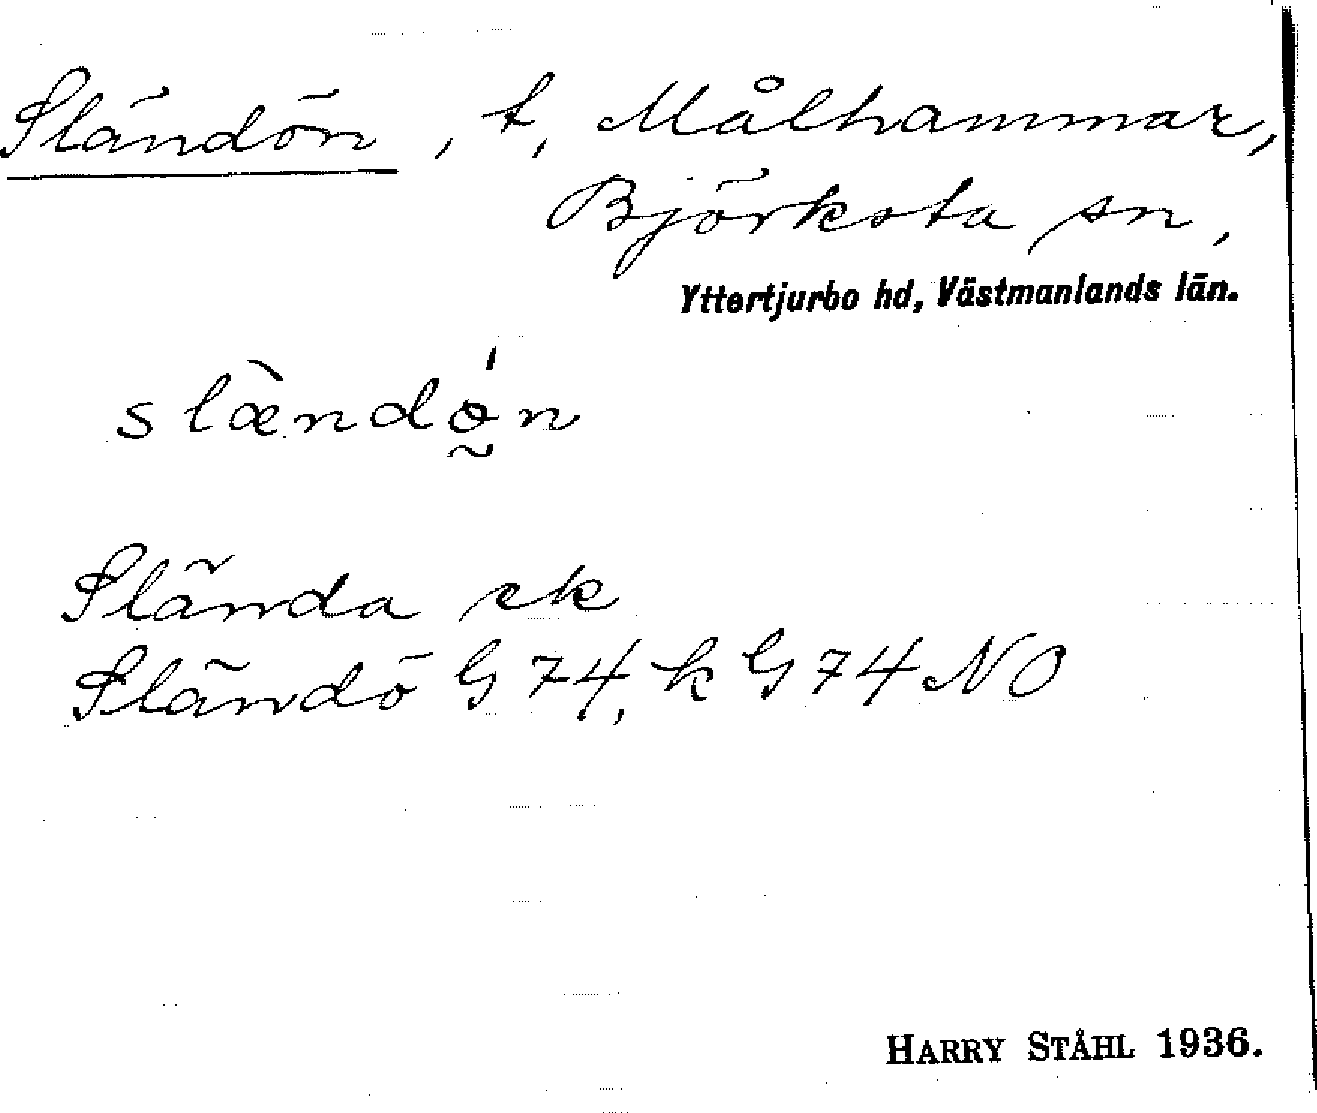 Sländön, t, Målhammar,
Björksta sn,
Yttertjurbo hd, Västmanlands län.
slæ̀ndǿ̰n
Slända ek
Sländö G 74, k G 74 NO
HARRY STÅHL 1936.